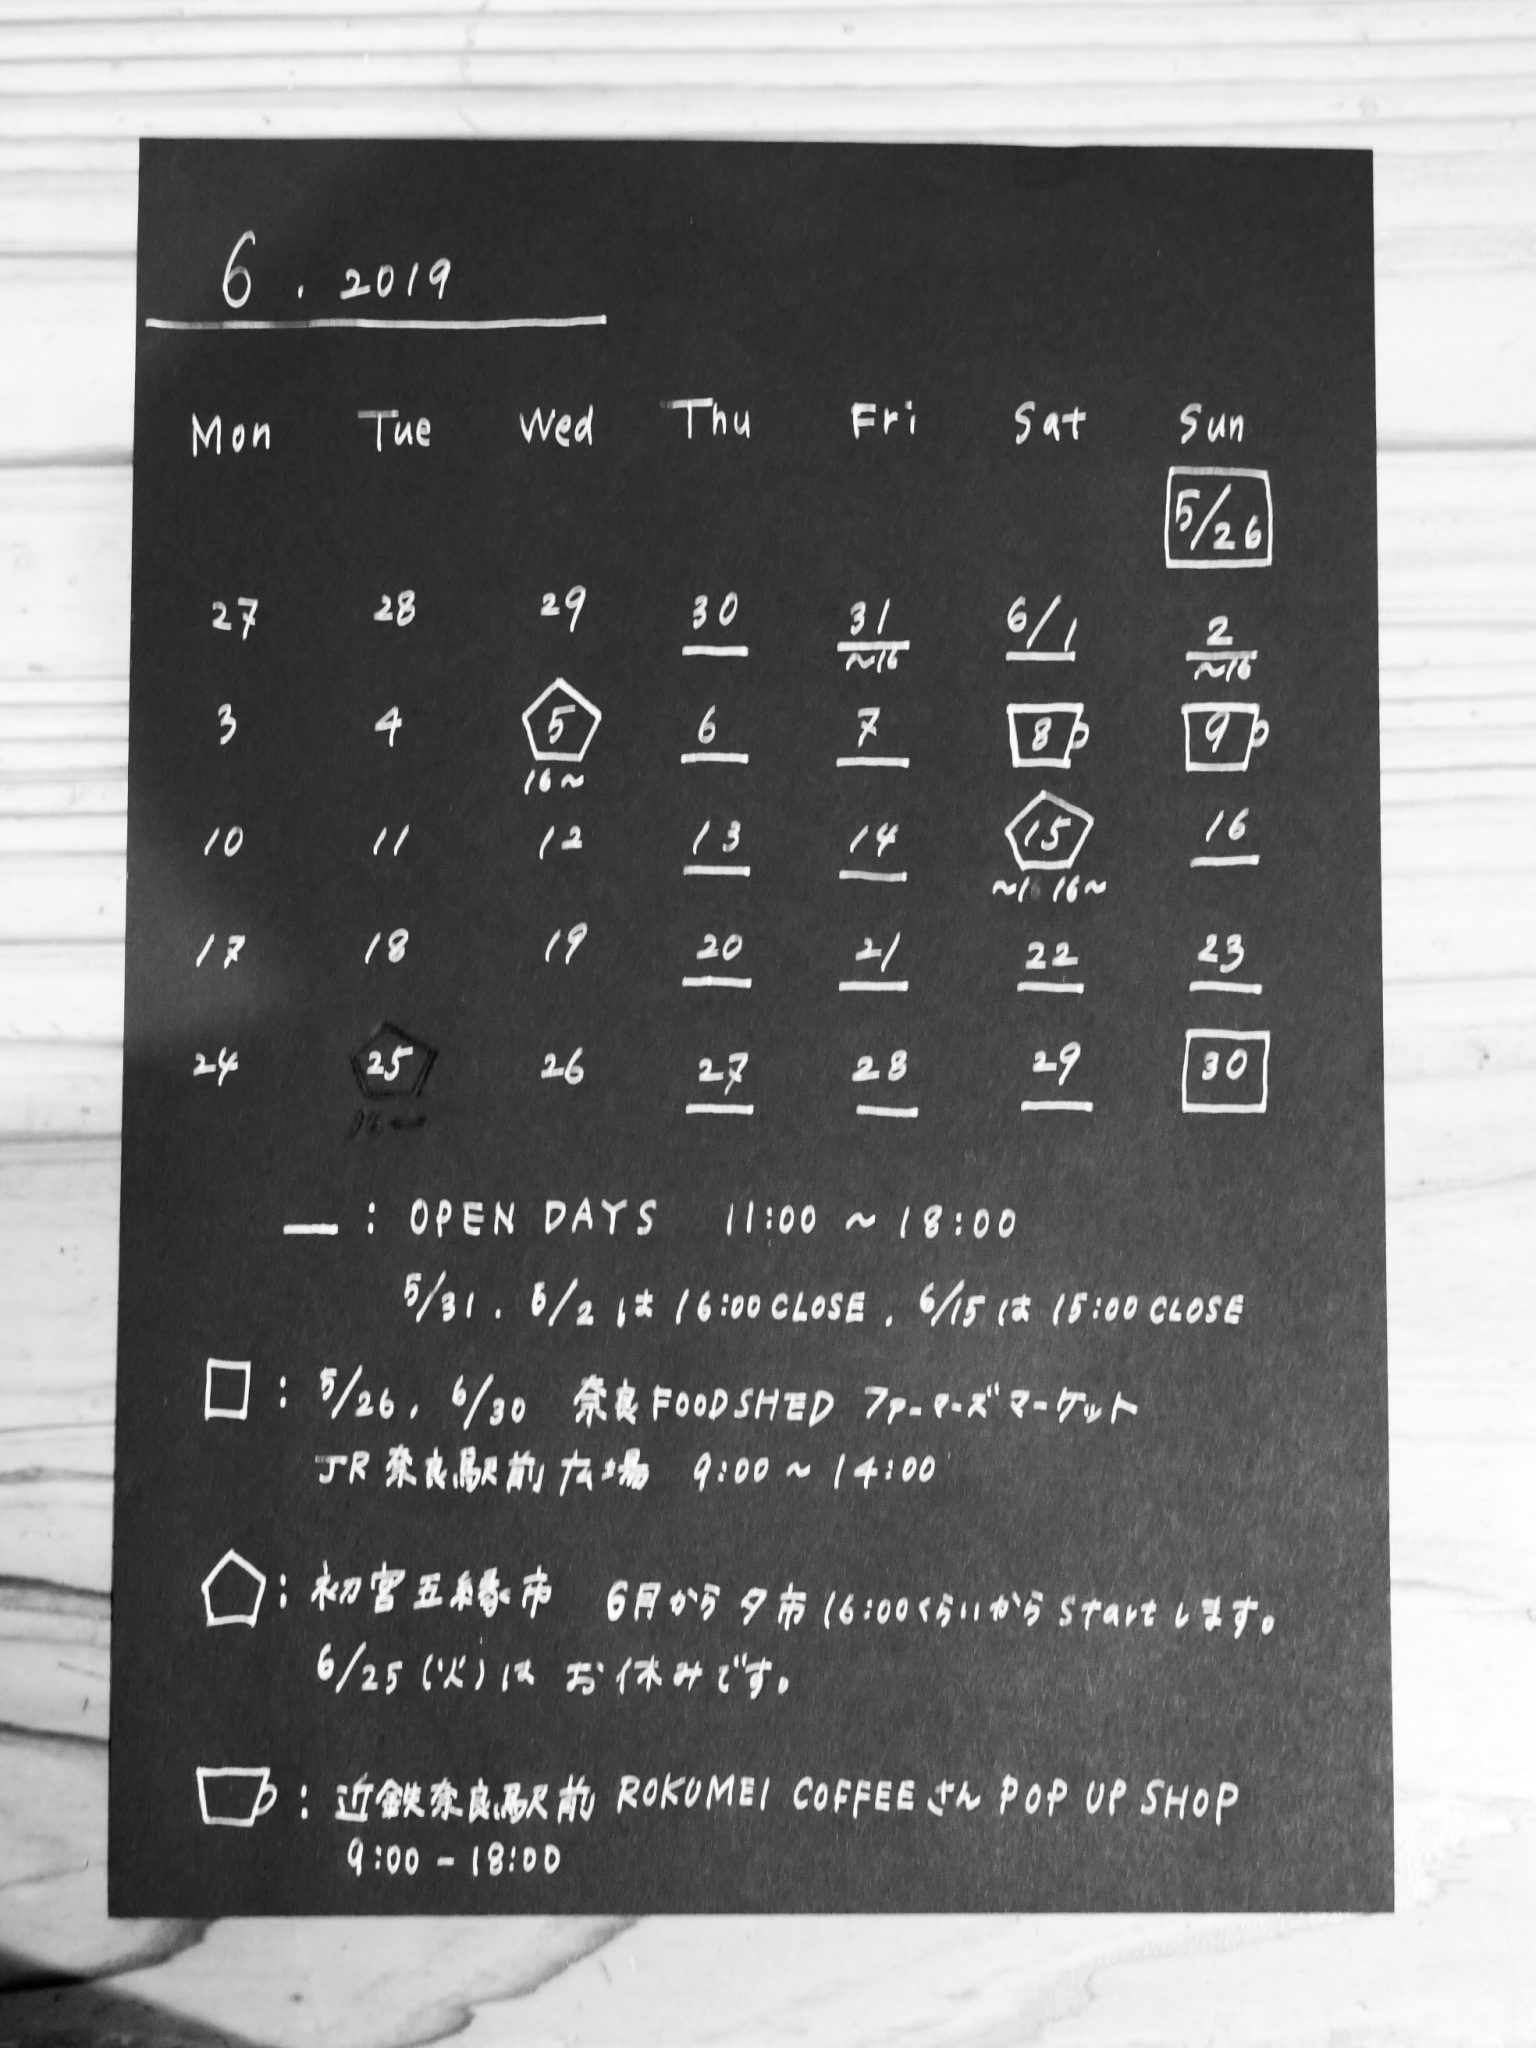 6. 2019
Mon Tue Wed Thu Fri Sat Sun
5/26
27 28 29 30 31 6/1 2
~16 ~16
3 4 5 6 7 8 9
16~
10 11 12 13 14 15 16
~1 16~
17 18 19 20 21 22 23
24 25 26 27 28 29 30
: OPEN DAYS 11:00 ~ 18:00
5/31, 6/2 は 16:00 CLOSE, 6/15 は 15:00 CLOSE
: 5/26, 6/30 奈良FOODSHED ファーマーズマーケット
JR奈良駅前広場 9:00 ~ 14:00
: 初宮五縁市 6月から夕市 16:00くらいから Start します。
6/25 (火) は お休みです。
: 近鉄奈良駅前 ROKUMEI COFFEE さん POP UP SHOP
9:00 - 18:00